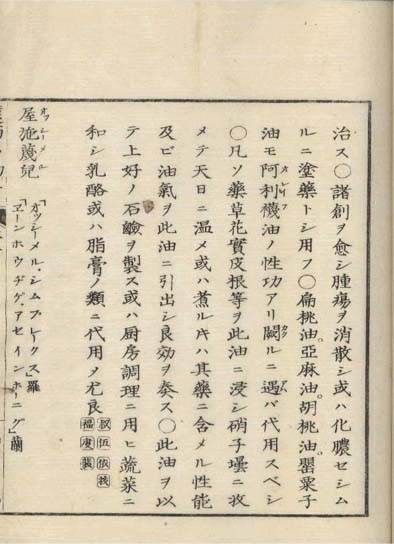 治ス〇諸創ヲ愈シ腫瘍ヲ消散シ或ハ化膿セシム
ルニ塗藥トシ用フ〇扁桃油。亞麻油。胡桃油。罌粟子
油モ阿利襪油ノ性功アリ闕ルニ遇バ代用スベシ
〇凡ソ藥草花實皮根等ヲ此油ニ浸シ硝子壜ニ收
メテ天日ニ温メ或ハ煮ルキハ其藥ニ含メル性能
及ビ油氣ヲ此油ニ引出シ良効ヲ奏ス〇此油ヲ以
テ上好ノ石鹼ヲ製ス或ハ厨房調理ニ用ヒ蔬菜ニ
和シ乳酪或ハ脂膏ノ類ニ代用タ尤良
屋施蔑兒
「ヲッシーメル、シムプレークス」羅
「ヱーンホウヂグアセインホーニグ」蘭